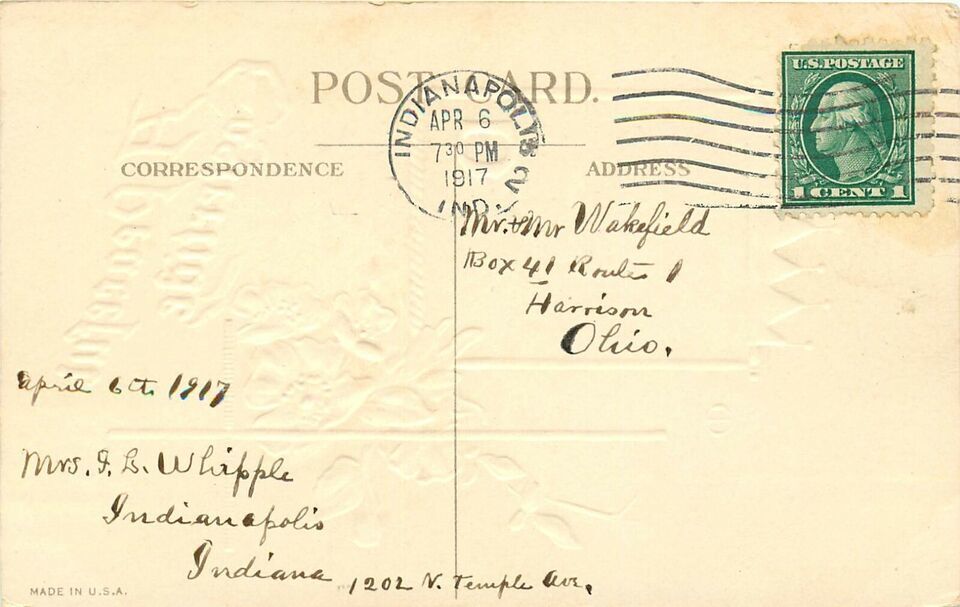 POST CARD.
CORRESPONDENCE
ADDRESS
INDIANAPOLIS
APR 6
7 30 PM
1917
IND.
U.S. POSTAGE
1 CENT 1
Mr. & Mr Wakefield
Box 41 Route 1
Harrison
Ohio.
April 6th 1917
Mrs. F. L. Whipple
Indianapolis
Indiana
1202 N. Temple Ave.
MADE IN U.S.A.